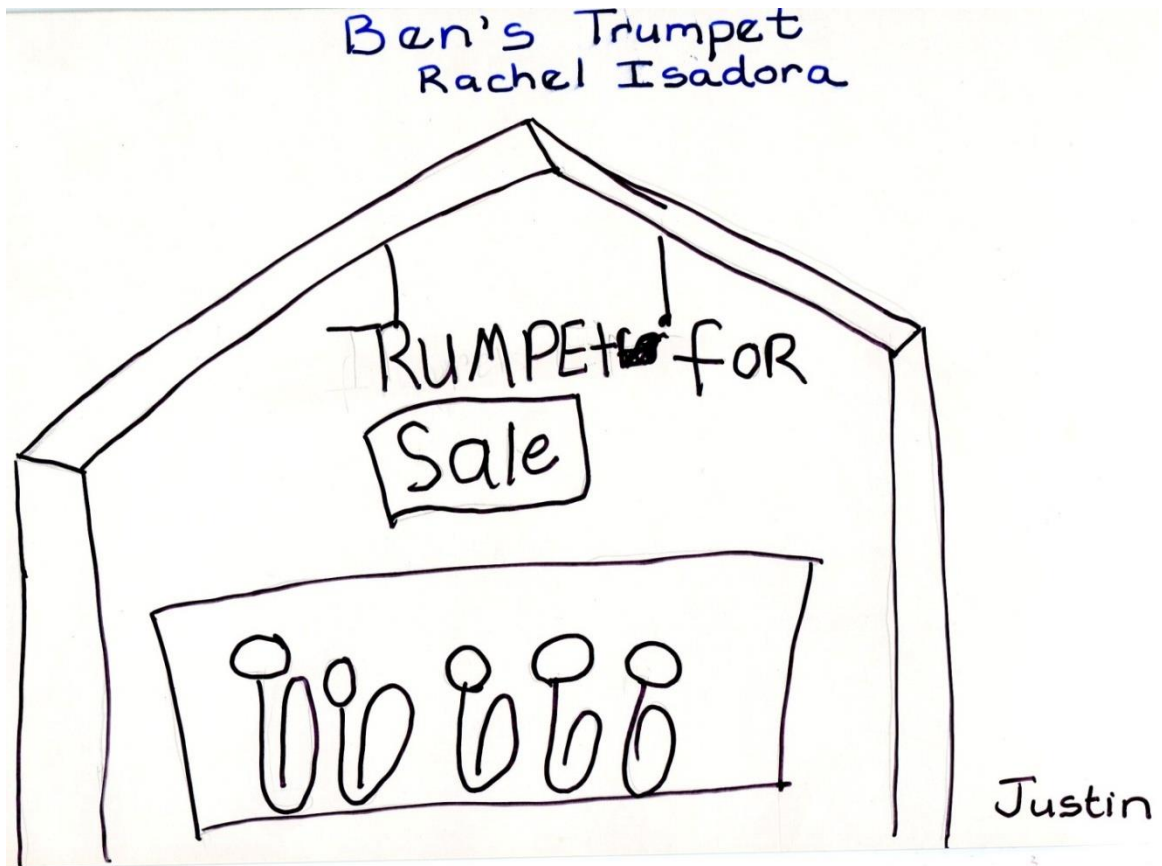 Ben's Trumpet
Rachel Isadora
TRUMPEt for
Sale
Justin